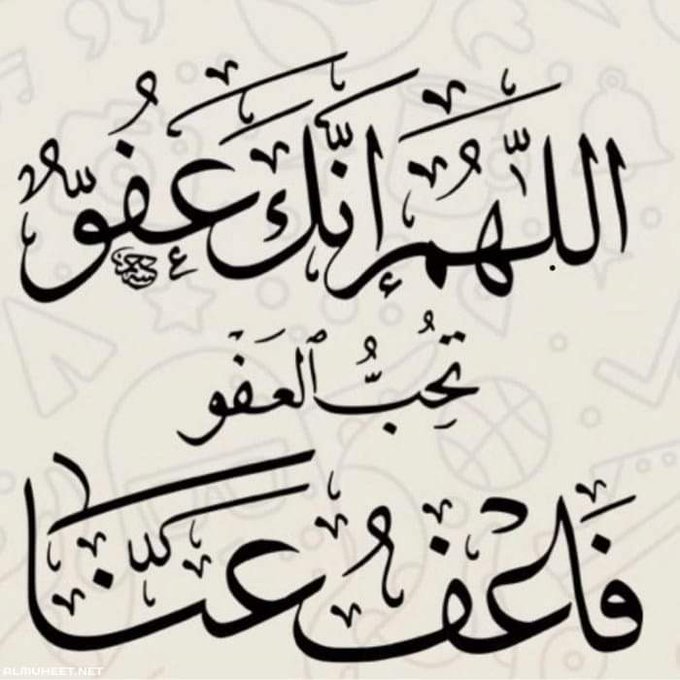 اللَّهُمَّ إِنَّكَ عَفُوٌّ
تُحِبُّ ٱلْعَفْوَ
فَاعْفُ عَنَّا
ALMUHEET.NET